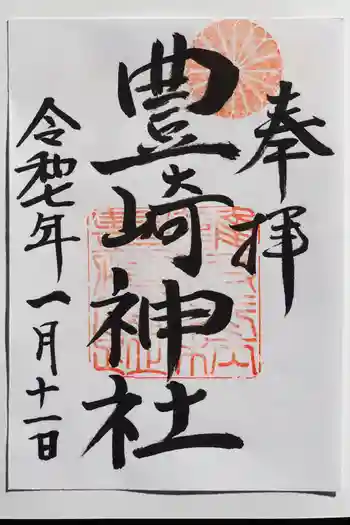 奉拝
豊崎神社
令和七年一月十一日